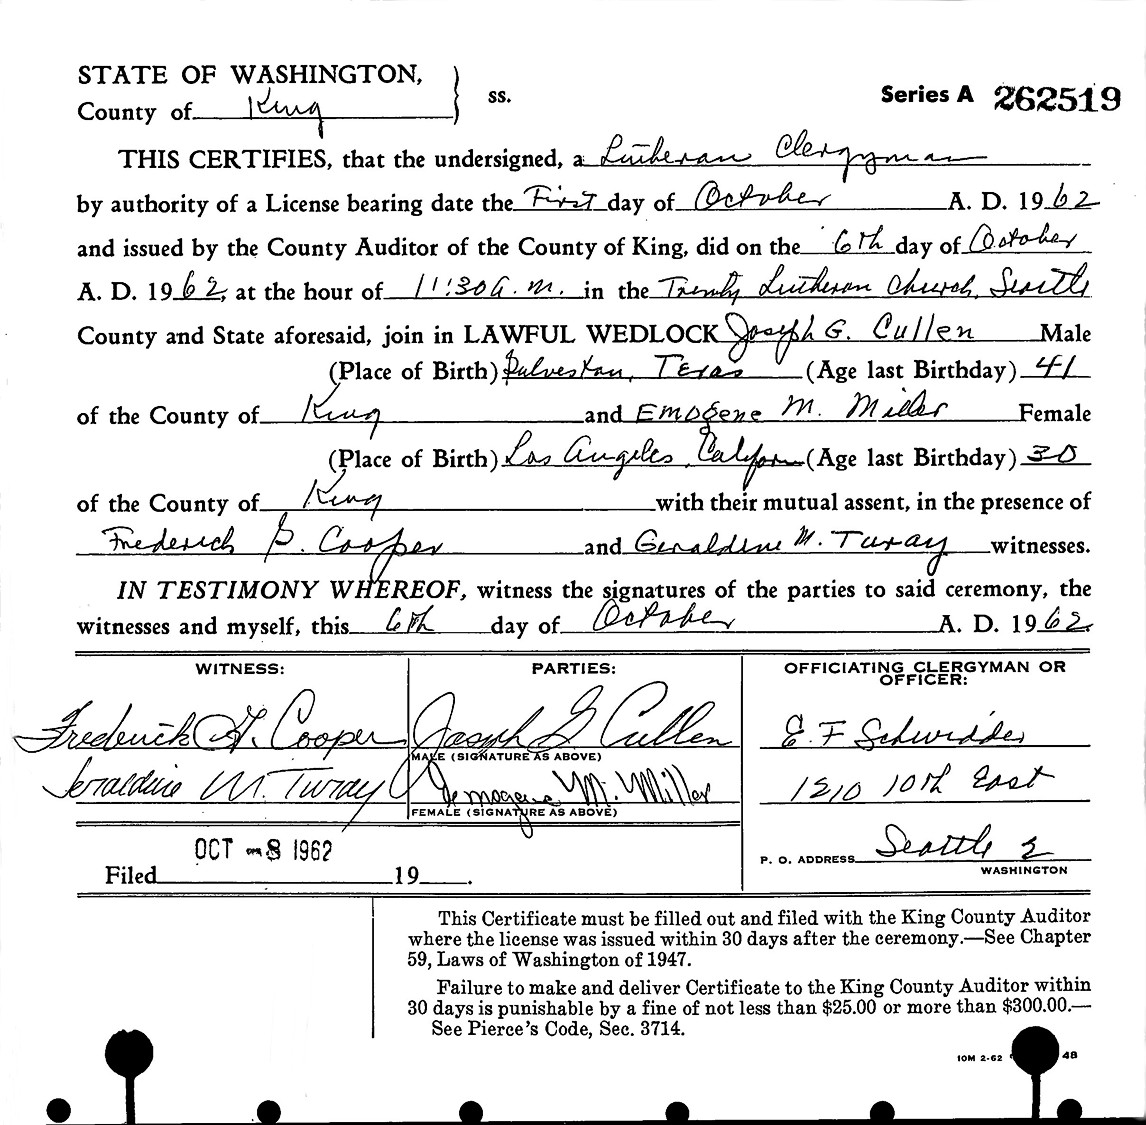 STATE OF WASHINGTON,
County of King
ss.
Series A 262519
THIS CERTIFIES, that the undersigned, a Lutheran Clergyman
by authority of a License bearing date the First day of October A. D. 1962
and issued by the County Auditor of the County of King, did on the 6th day of October
A. D. 1962, at the hour of 11:30 a.m. in the Trinity Lutheran Church, Seattle
County and State aforesaid, join in LAWFUL WEDLOCK Joseph G. Cullen Male
(Place of Birth) Galveston, Texas (Age last Birthday) 41
of the County of King and Emogene M. Miller Female
(Place of Birth) Los Angeles, Californ (Age last Birthday) 30
of the County of King with their mutual assent, in the presence of
Frederick G. Cooper and Geraldine M. Turay witnesses.
IN TESTIMONY WHEREOF, witness the signatures of the parties to said ceremony, the
witnesses and myself, this 6th day of October A. D. 1962.
WITNESS:
Frederick G. Cooper
Geraldine M. Turay
PARTIES:
Joseph G Cullen
MALE (SIGNATURE AS ABOVE)
Emogene M. Miller
FEMALE (SIGNATURE AS ABOVE)
OFFICIATING CLERGYMAN OR
OFFICER:
E. F Schwidder
1210 10th East
P. O. ADDRESS Seattle 2
WASHINGTON
OCT -8 1962
Filed 19 .
This Certificate must be filled out and filed with the King County Auditor
where the license was issued within 30 days after the ceremony.—See Chapter
59, Laws of Washington of 1947.
Failure to make and deliver Certificate to the King County Auditor within
30 days is punishable by a fine of not less than $25.00 or more than $300.00.—
See Pierce's Code, Sec. 3714.
10M 2-62 48